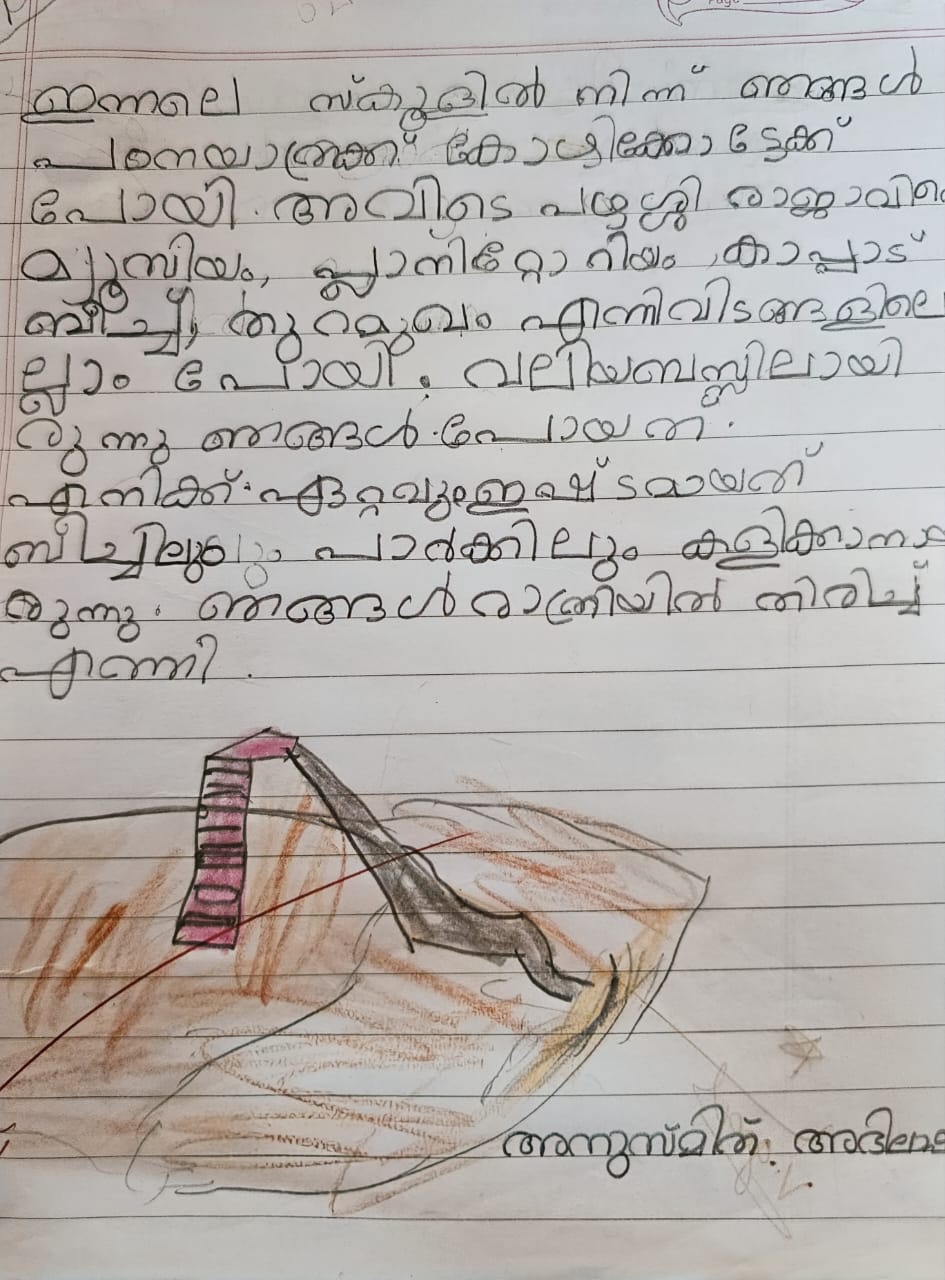 ഇന്നലെ സ്കൂളിൽ നിന്ന് ഞങ്ങൾ
പഠനയാത്രക്ക് കോഴിക്കോട്ടേക്ക്
പോയി. അവിടെ പഴശ്ശി രാജാവിന്റെ
മ്യൂസിയം, പ്ലാനിറ്റോറിയം, കാപ്പാട്
ബീച്ച്, തുറമുഖം എന്നിവിടങ്ങളിലെ
ല്ലാം പോയി. വലിയബസ്സിലായി
രുന്നു ഞങ്ങൾ പോയത്.
എനിക്ക് ഏറ്റവുംഇഷ്ടമായത്
ബീച്ചിലും പാർക്കിലും കളിക്കാനാ
രുന്നു. ഞങ്ങൾ രാത്രിയിൽ തിരിച്ച്
എത്തി.
അനുസ്മിത്.